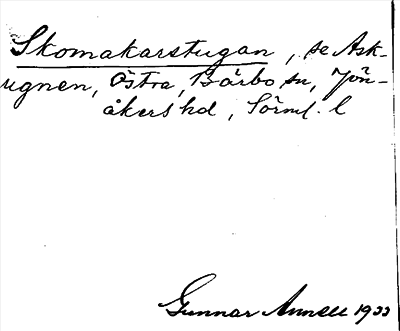 Skomakarstugan, se Ask-
ugnen, Östra, Bärbo sn, Jön-
åkers hd, Sörml. l
Gunnar Annell 1933